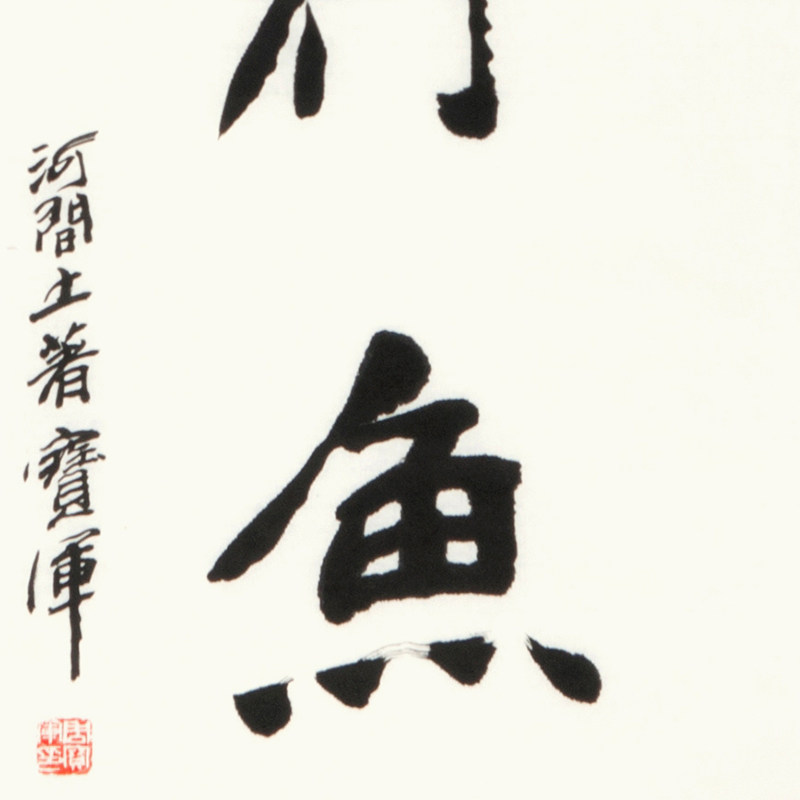 魚
河間土著寶